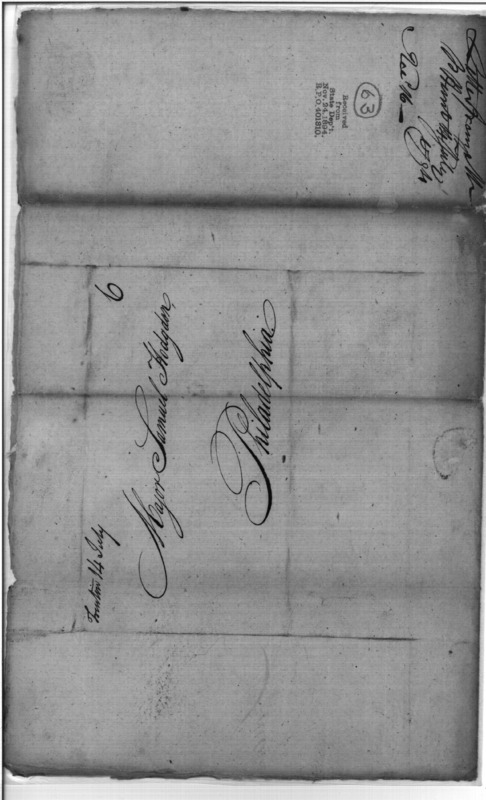 Letter from Mr
July
1784
No. 16
63
Received
from
State Dep't.
Nov. 24, 1894.
R.P.O. 401810.
6
Major Samuel Hodgdon,
Philadelphia
Trenton 14 July